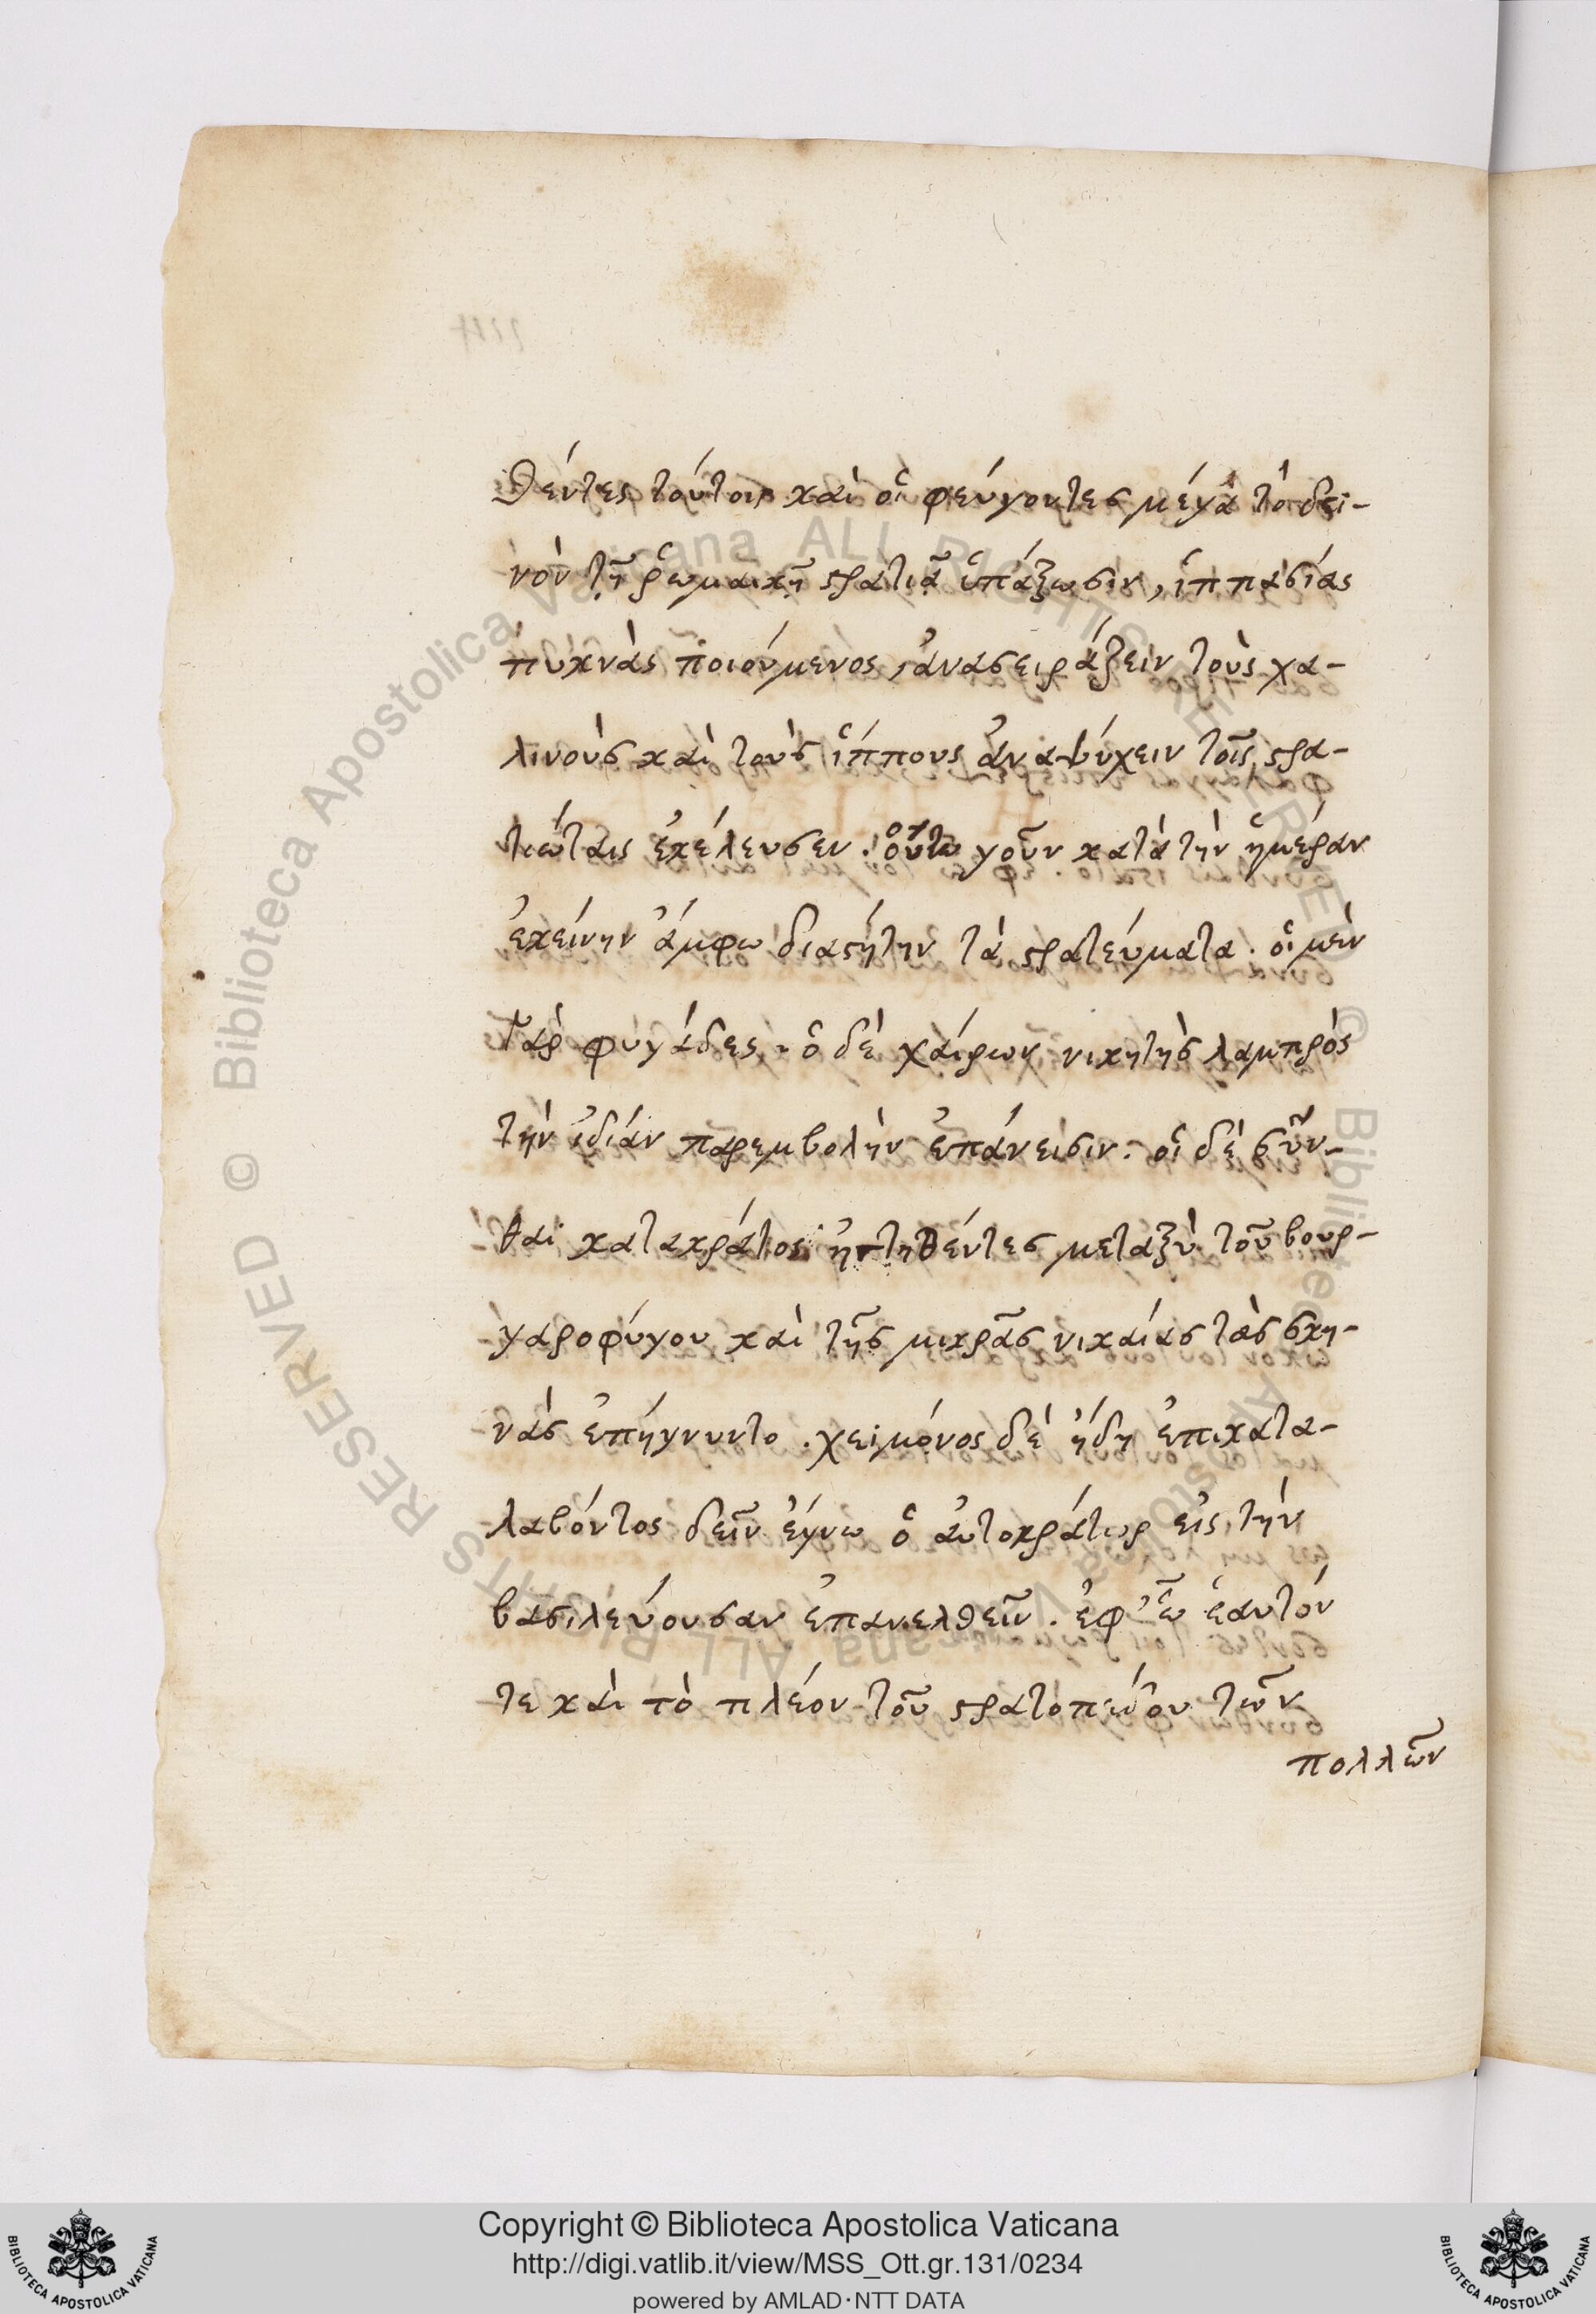 θέντες τούτοις καὶ οἱ φεύγοντες μέγα τὸ δει-
νὸν τῇ ῥωμαικῇ στρατιᾷ ὑπάξωσιν, ἱππασίας
πυκνὰς ποιούμενος, ἀνασειράζειν τοὺς χα-
λινοὺς καὶ τοὺς ἵππους ἀναψύχειν τοῖς στρα-
τιώταις ἐκέλευσεν. οὕτω γοῦν κατὰ τὴν ἡμέραν
ἐκείνην ἄμφω διαστήτην τὰ στρατεύματα. οἱ μὲν
γὰρ φυγάδες, ὁ δὲ χαίρων νικητὴς λαμπρὸς
τὴν ἰδίαν παρεμβολὴν ἐπάνεισιν. οἱ δὲ σκύν-
θαι κατακράτος ἡττηθέντες μεταξὺ τοῦ βουρ-
γαροφύγου καὶ τῆς μικρᾶς νικαίας τὰς σκη-
νὰς ἐπήγνυντο. χειμόνος δὲ ἤδη ἐπικατα-
λαβόντος δεῖν ἔγνω ὁ αὐτοκράτωρ εἰς τὴν
βασιλεύουσαν ἐπανελθεῖν. ἐφ' ᾧ ἑαυτόν
τε καὶ τὸ πλέον τοῦ στρατοπέδου τῶν
πολλῶν
Copyright © Biblioteca Apostolica Vaticana
http://digi.vatlib.it/view/MSS_Ott.gr.131/0234
powered by AMLAD·NTT DATA
© Biblioteca Apostolica Vaticana ALL RIGHTS RESERVED
© Biblioteca Apostolica Vaticana ALL RIGHTS RESERVED
BIBLIOTECA APOSTOLICA VATICANA
BIBLIOTECA APOSTOLICA VATICANA